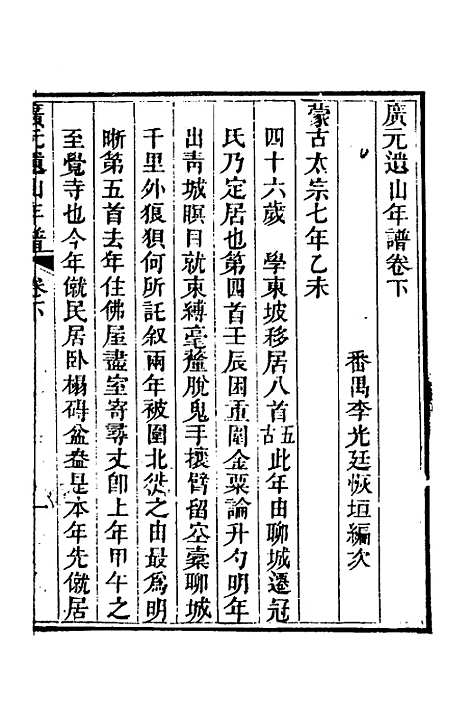 廣元遺山年譜卷下
番禺李光廷恢垣編次
蒙古太宗七年乙未
四十六歲　學東坡移居八首五古此年由聊城遷冠
氏乃定居也第四首壬辰困重圍金粟論升勺明年
出青城瞑目就束縛毫釐脫鬼手攘臂留空橐聊城
千里外狼狽何所託叙兩年被圍北徙之由最爲明
晰第五首去年住佛屋盡室寄尋丈卽上年甲午之
至覺寺也今年僦民居臥榻碍盆盎是本年先僦居
廣元遺山年譜　卷下　一